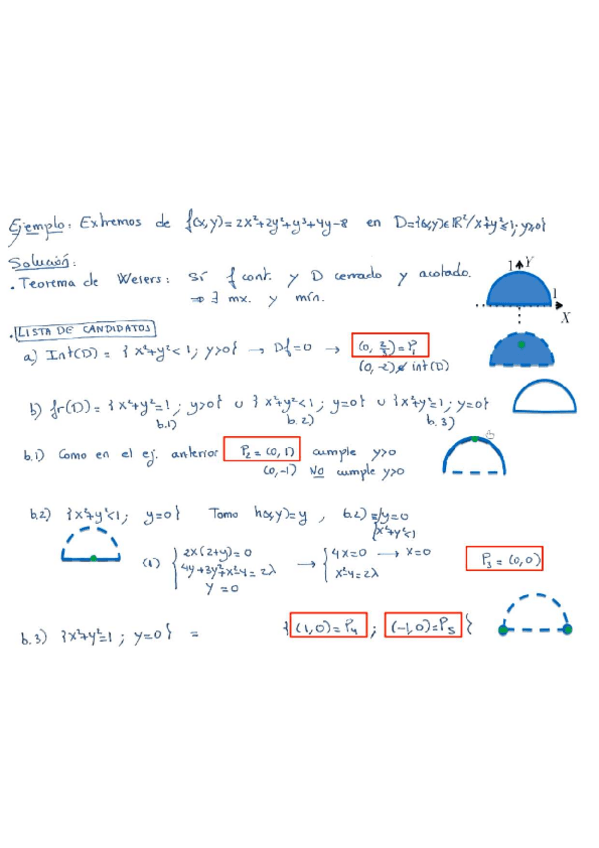 Ejemplo: Extremos de f(x,y)=2x²+2y²+y³+4y-8 en D={(x,y)∈ℝ²/x²+y²≤1; y≥0}
Solución:
. Teorema de Weiers: Sí f cont. y D cerrado y acotado.
⇒ ∃ mx. y mín.
1 Y
1
X
. LISTA DE CANDIDATOS
a) Int(D) = {x²+y²<1; y>0} → Df=0 → (0, 2/3)=P₁
(0,-2)∉ int(D)
b) fr(D) = {x²+y²=1; y>0} ∪ {x²+y²<1; y=0} ∪ {x²+y²=1; y=0}
b.1) b.2) b.3)
b.1) Como en el ej. anterior P₂=(0,1) cumple y>0
(0,-1) No cumple y>0
b.2) {x²+y²<1; y=0} Tomo h(x,y)=y, b.2)=/y=0
x²+y²<1
(1) { 2x(2+y)=0 → { 4x=0 → x=0 P₃=(0,0)
4y+3y²+x²-4=2λ x²-4=2λ
y=0
b.3) {x²+y²=1; y=0} = {(1,0)=P₄; (-1,0)=P₅}